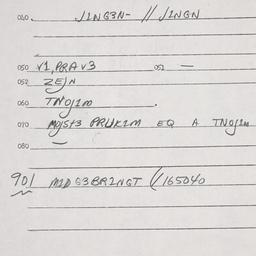 040. J1NG3N- // J1NGN
050 V1, PRA V3 051 —
052 ZEJN
060 TNOJ1M .
070 MOJST3 PRUK1M EQ A TNOJ1M
080 —
901 M1D G3BR1NGT // 165040